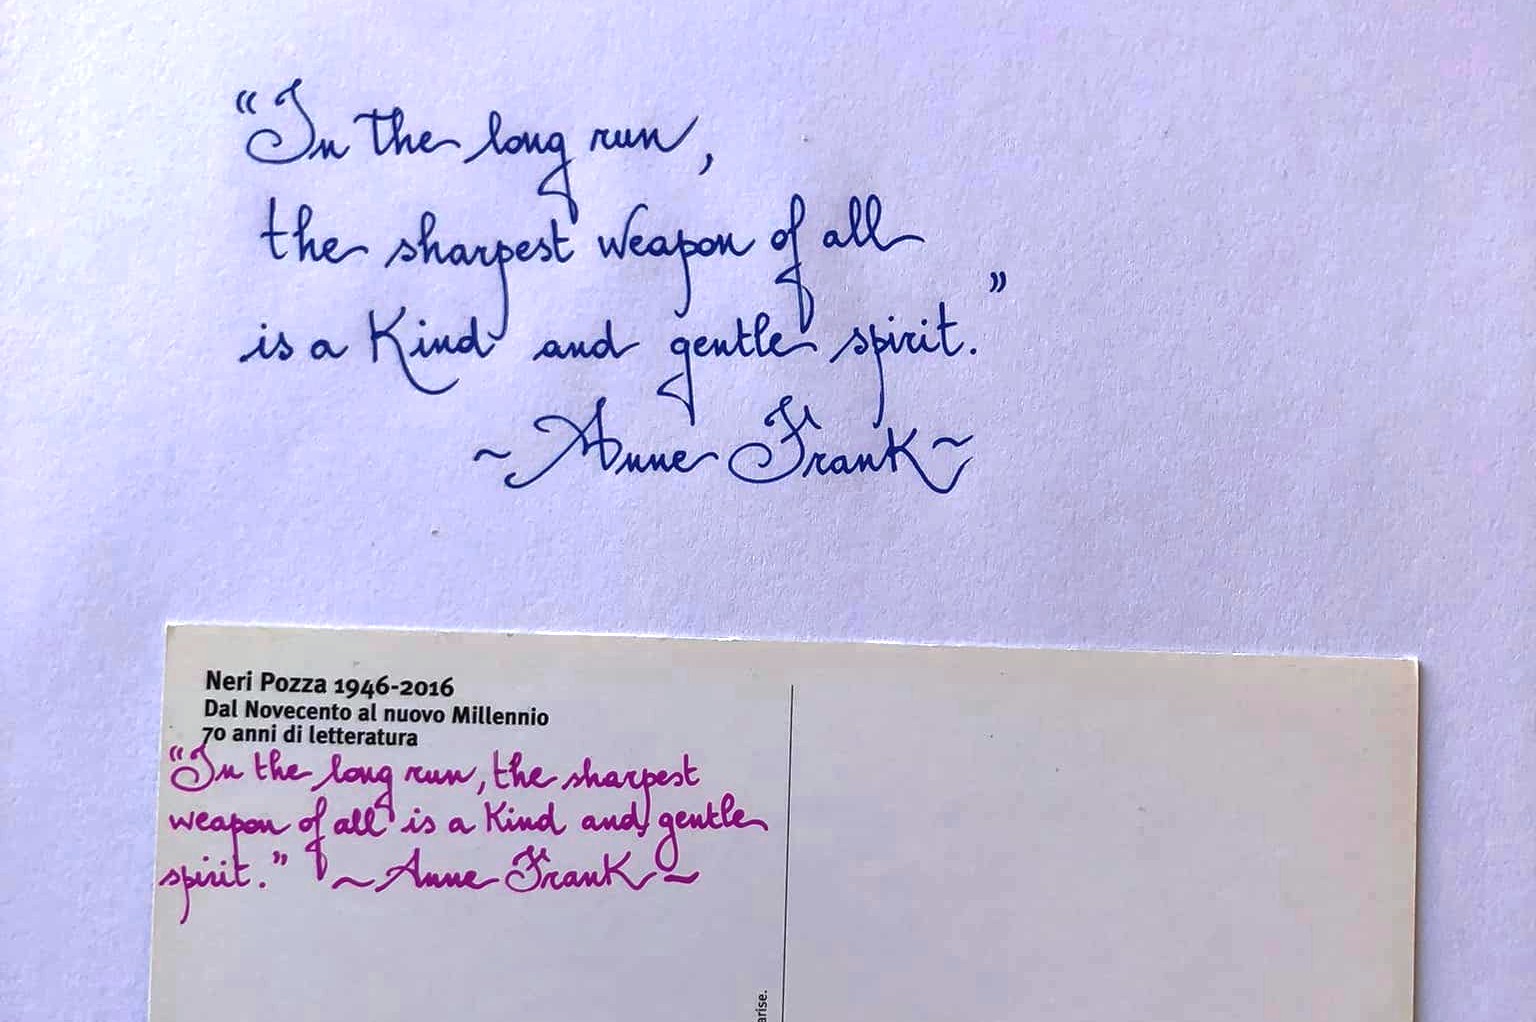 “In the long run,
the sharpest weapon of all
is a Kind and gentle spirit.”
~ Anne Frank ~
Neri Pozza 1946-2016
Dal Novecento al nuovo Millennio
70 anni di letteratura
“In the long run, the sharpest
weapon of all is a Kind and gentle
spirit.” ~ Anne Frank ~
arise.